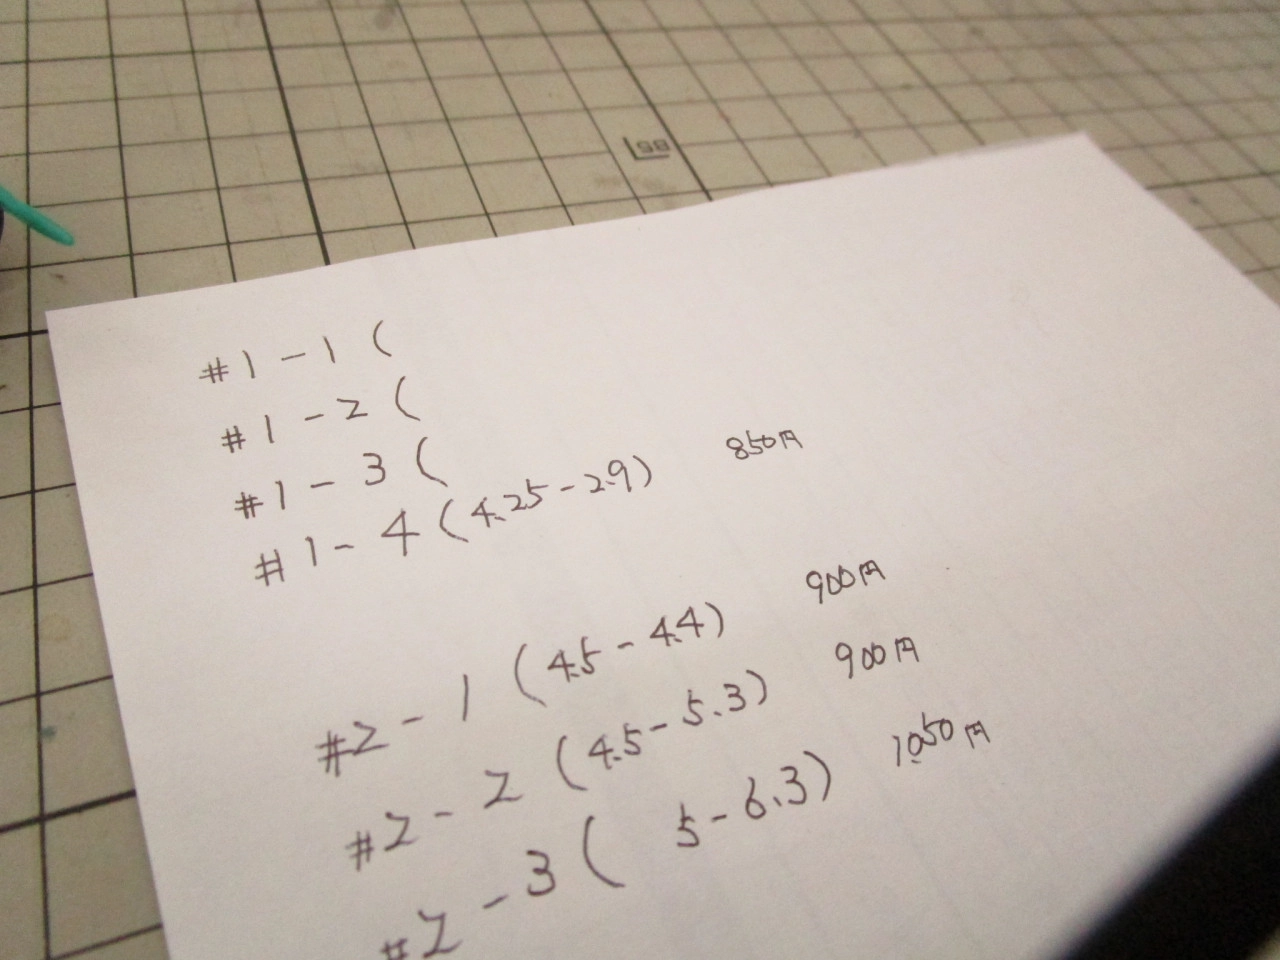 #1-1(
#1-2(
#1-3(
#1-4(4.25-2.9) 850円
#2-1(4.5-4.4) 900円
#2-2(4.5-5.3) 900円
#2-3( 5-6.3) 1,050円